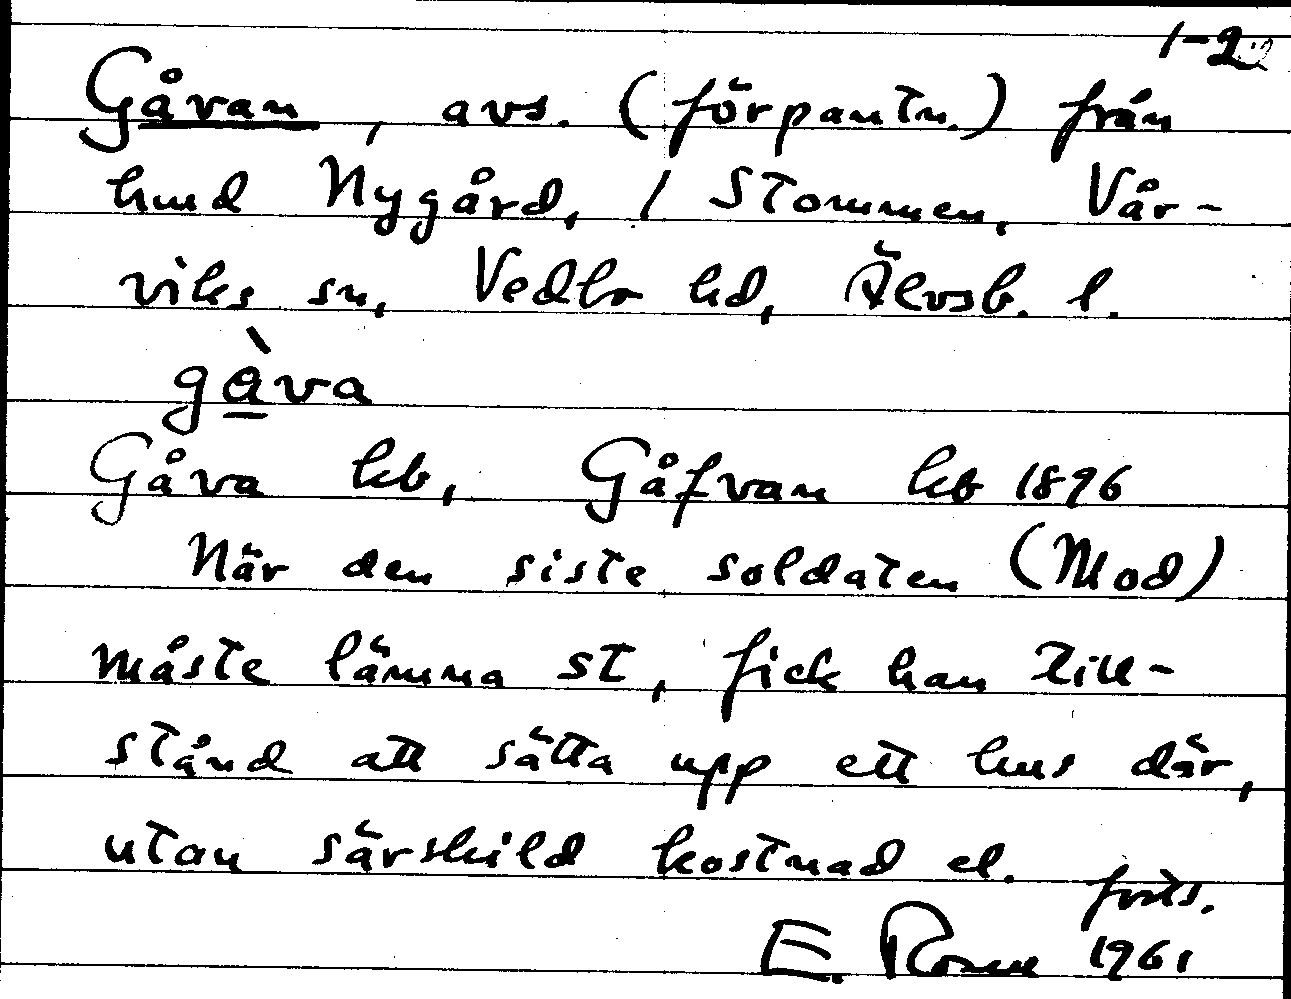 1-2
Gåvan, avs. (förpantn.) från
hmd Nygård, 1 Stommen, Vår-
viks sn, Vedbo hd, Älvsb. l.
gå̀va
Gåva kb, Gåfvan kb 1896
När den siste soldaten (Mod)
måste lämna st, fick han till-
stånd att sätta upp ett hus där,
utan särskild kostnad el. forts.
E. Rosell 1961